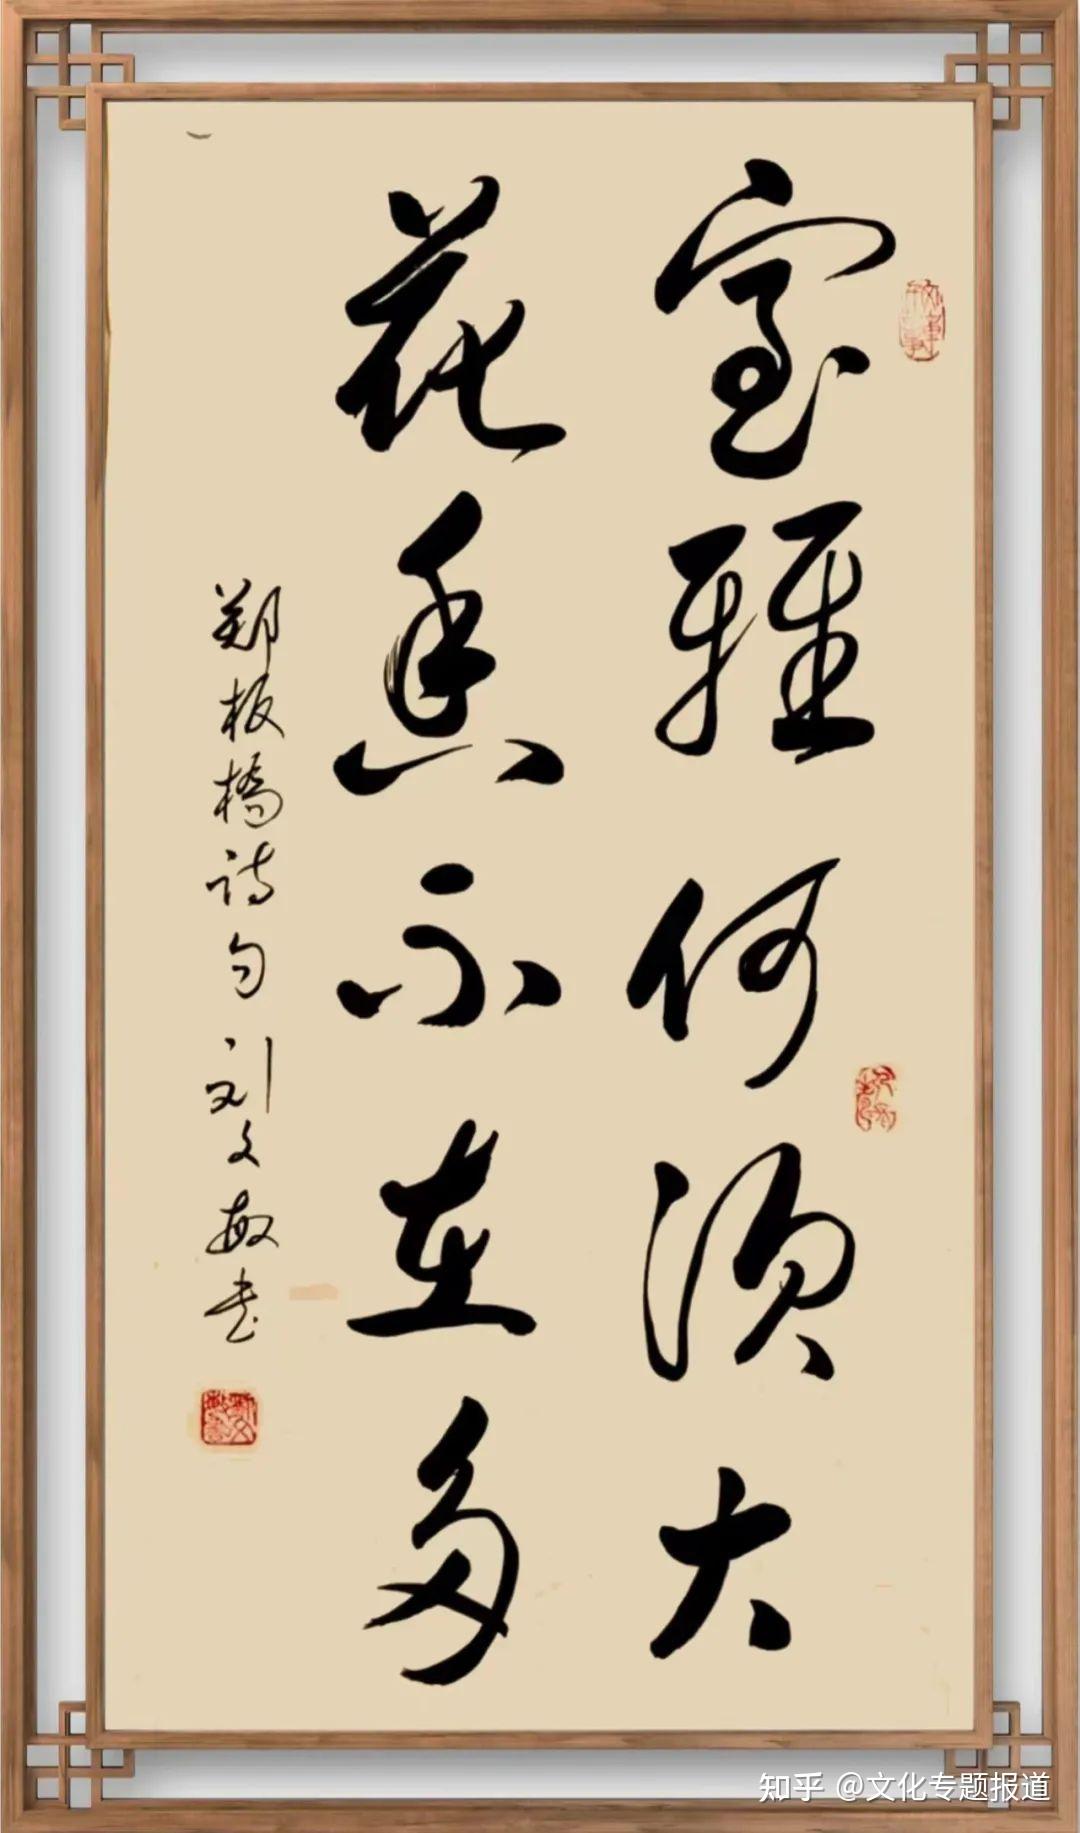 室雅何须大
花香不在多
郑板橋诗句刘文敏书
知乎 @文化专题报道